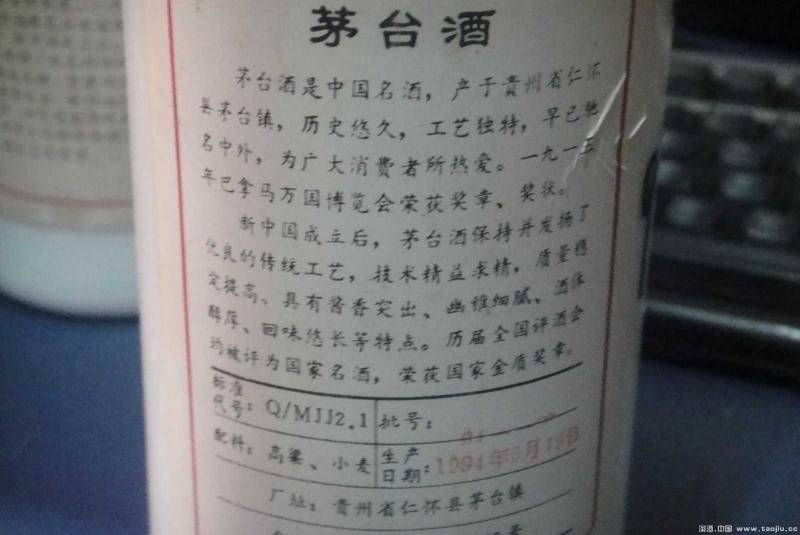 茅台酒
茅台酒是中国名酒，产于贵州省仁怀
县茅台镇，历史悠久，工艺独特，早已驰
名中外，为广大消费者所热爱。一九一五
年巴拿马万国博览会荣获奖章、奖状。
新中国成立后，茅台酒保持并发扬了
优良的传统工艺，技术精益求精，质量稳
定提高、具有酱香突出、幽雅细腻、酒体
醇厚、回味悠长等特点。历届全国评酒会
均被评为国家名酒，荣获国家金质奖章。
标准代号：Q/MJJ2.1 批号：
配料：高粱、小麦 生产日期：1994年5月19日
厂址：贵州省仁怀县茅台镇
淘酒.中国 www.taojiu.cc